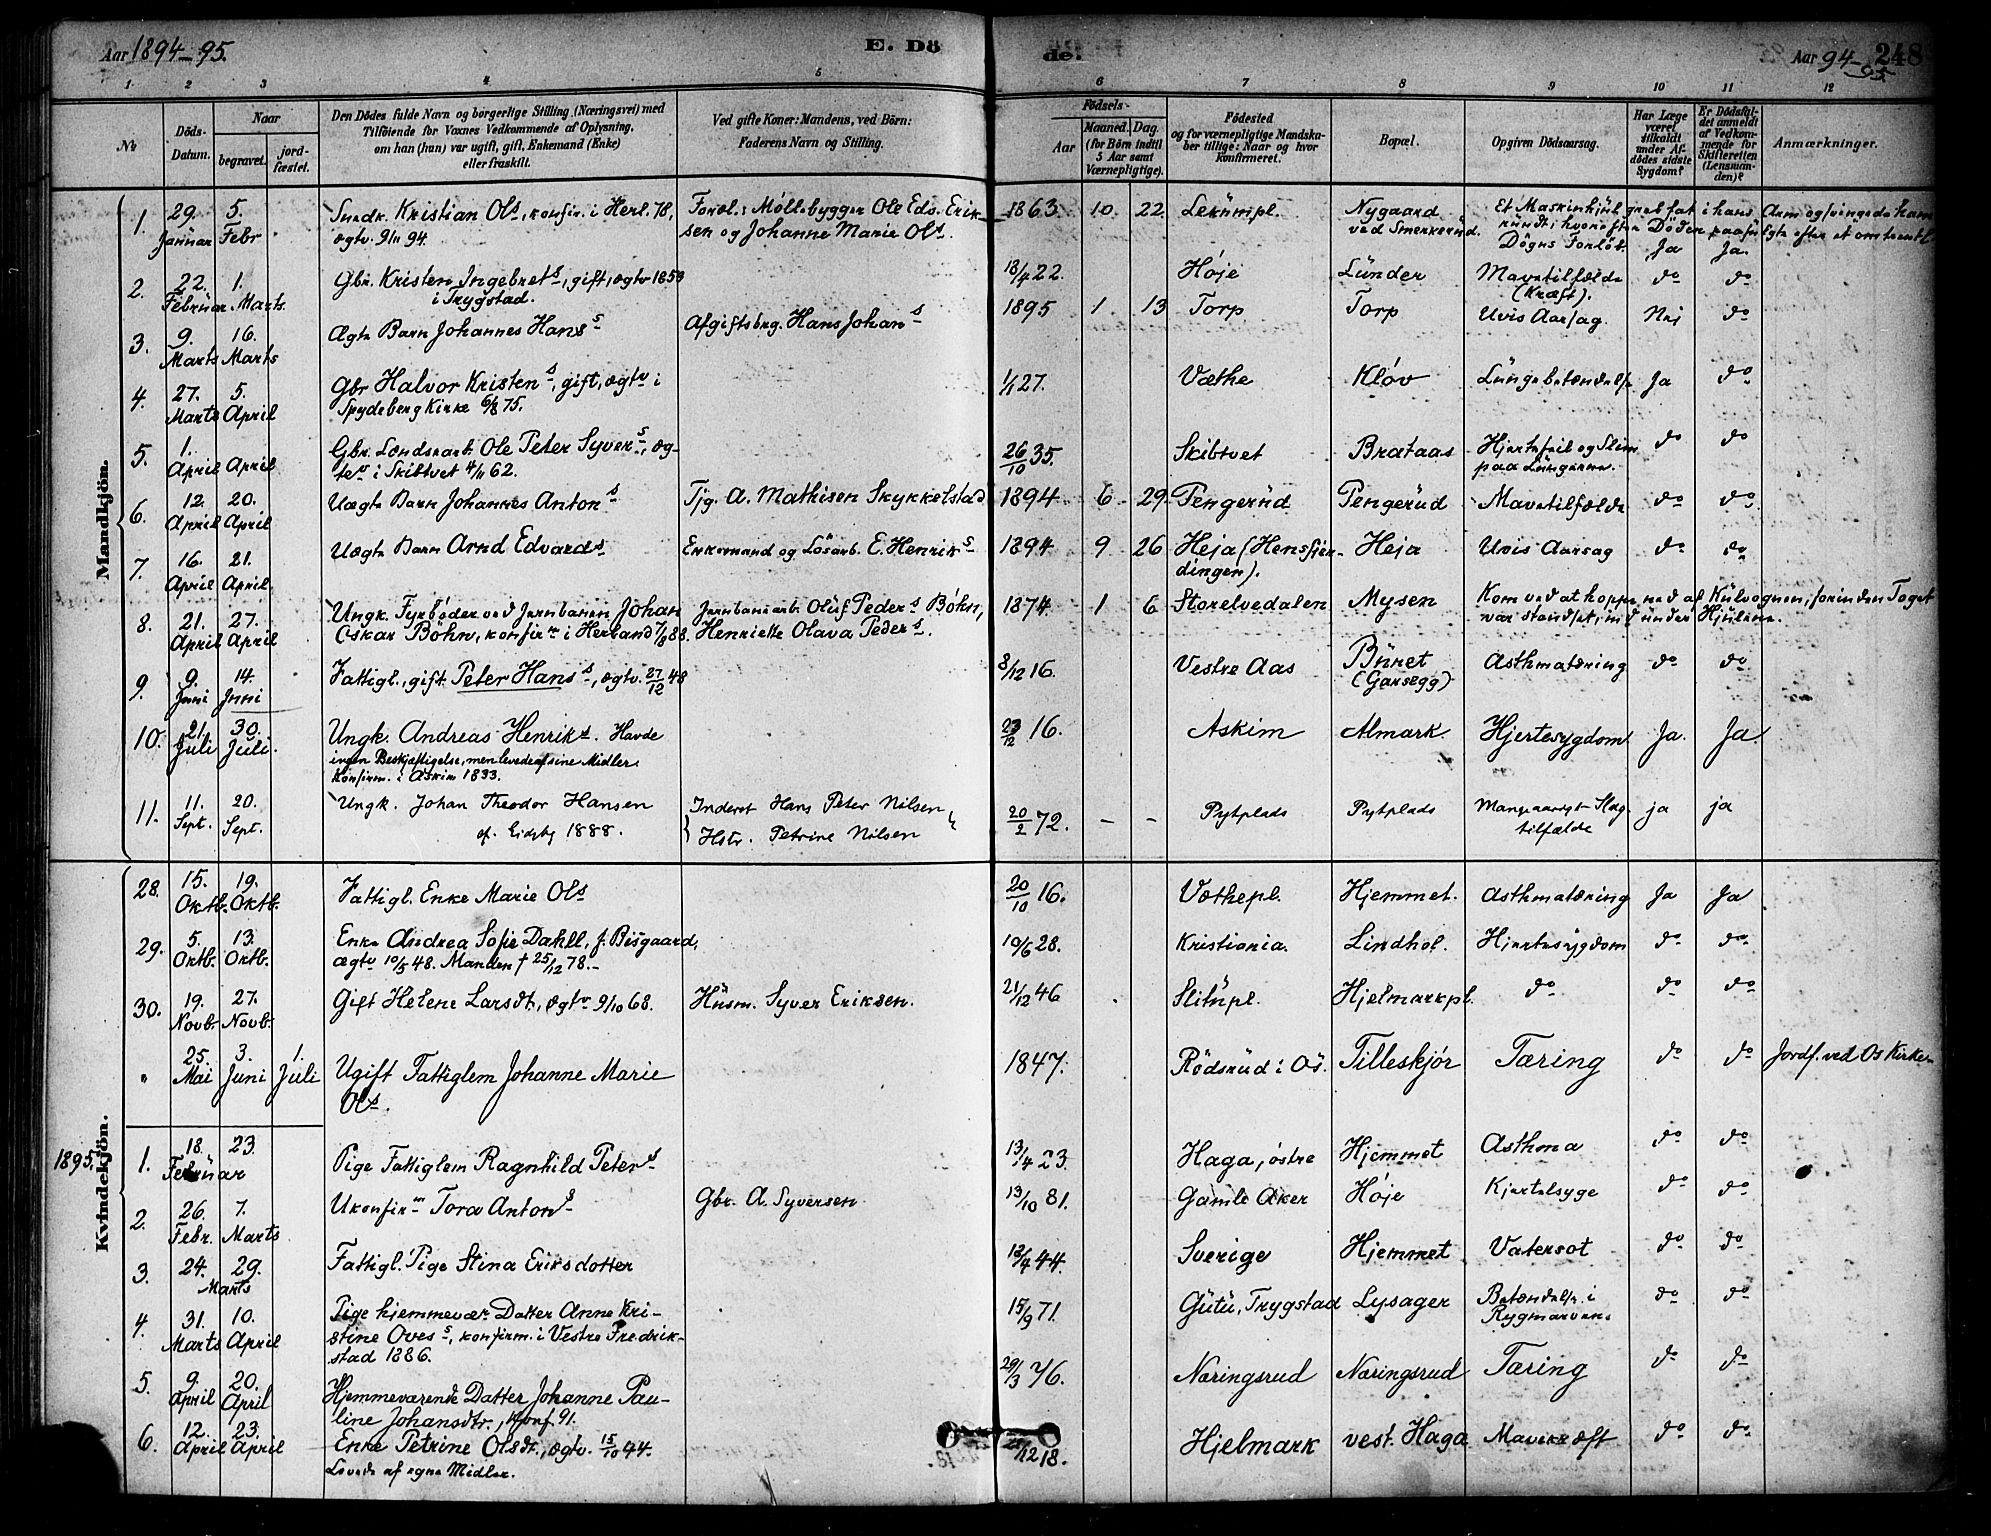 Aar 1894-95.
E. Dö
de.
Aar 94-95.
248
1 2 3 4 5 6 7 8 9 10 11 12
№
Döds-Datum.
Naar
begravet.
jord-fæstet.
Den Dödes fulde Navn og borgerlige Stilling (Næringsvei) med
Tilföiende for Voxnes Vedkommende af Oplysning,
om han (hun) var ugift, gift, Enkemand (Enke)
eller fraskilt.
Ved gifte Koner: Mandens, ved Börn:
Faderens Navn og Stilling.
Födsels-
Aar
Maaned.
Dag.
(for Börn indtil
5 Aar samt
Værnepligtige).
Födested
og for værnepligtige Mandska-
ber tillige: Naar og hvor
konfirmeret.
Bopæl.
Opgiven Dödsaarsag.
Har Læge
været
tilkaldt
under Af-
dödes sidste
Sygdom?
Er Dödsfal-
det anmeldt
af Vedkom-
mende for
Skifteretten
(Lensman-
den)?
Anmærkninger.
Mandkjön.
1. 29. Januar 5. Febr Kristian Ols, konfir. i Herl. 78, Foræl.: Möllebygger Ole Eds. Erik- 1863 10 22. Nygaard Et Maskinhjul greb fat i hans Arm og svingede ham
ægtv. 9/11 94. sen og Johanne Marie Ols. ved Smerkerud. rundt, hvorefter Döden paafulgte efter et omtrentl.
Dögns Forlöb. Ja Ja.
2. 22. Februar 1. Marts Gbr. Kristen Ingebrets, gift, ægtv 1853 22. Høje Lunder Mavetilfælde do do
i Trygstad. (Kræft).
3. 9. Marts 16. Marts Ægte Barn Johannes Hans Hans Johans 1895 1 13 Torp Torp Uvis Aarsag. Nej do
4. 27. Marts 5. April Gbr Halvor Kristens, gift, ægtv i 1/1 27. Væthe Kløv Lungebetændelse Ja do
Spydeberg Kirke 6/8 75.
5. 1. April April Gbr. Ole Peter Syvers, æg- 26/10 35. Skibtvet Brataas Hjertefeil og Slim do do
tev i Skibtvet 4/11 62. paa Lungerne.
6. 12. April 20. April Uægte Barn Johannes Antons Tjg. A. Mathisen Skykkelstad 1894 6 29. Pengerud Pengerud Mavetilfælde do do
7. 16. April 21. April Uægte Barn Arnd Edvards Enkemand og Lösarb. E. Henriks 1894 9 26 Heja (Hensfjer- Heja Uvis Aarsag do do
dingen).
8. 21. April 27. April Ungk. Fyrböder ved Jernbanen Johan Jernbanearb. Oluf Peders Bøhn, 1874 1 6 Storelvedalen Mysen Kom ved at hoppe ned af Kulvognen, forinden Toget
Oskar Böhn, konfirm i Herland 7/8 88. Henriette Olava Peders. var standset, ind under Hjulene.
9. 9. Juni 14. Juni Fattigl., gift Peter Hans, ægtv. 27/12 48 8/12 16. Vestre Aas Büret Asthmatæring do do
(Garsegg)
10. 21. Juli 30. Juli. Ungk. Andreas Henriks. Havde 23/12 16. Askim Almark Hjertesygdom Ja. Ja.
ingen Beskjæftigelse, men levede af sine Midler.
Konfirm. i Askim 1833.
11. 11. Sept. 20. Sept. Ungk. Johan Theodor Hansen Inderst Hans Peter Nilsen 20/2 72. - - Pytplads Pytplads Mangeaarigt Slag- ja ja
1888. Hstr. Petrine Nilsen tilfælde
Kvindekjön.
28. 15. Oktb. 19. Oktb. Fattigl. Enke Marie Ols 20/10 16. Væthepl. Hjemmet. Asthmatæring Ja Ja
29. 5. Oktb. 13. Oktb. Enke Andrea Sofie Dahll, f. Bisgaard, 10/6 28. Kristiania. Lindhol. Hjertesygdom do do
ægtv 10/5 48. Manden † 25/12 78.
30. 19. Novb. 27. Novb. Gift Helene Larsdt., ægtv 9/10 68. Husm. Syver Eriksen. 21/12 46 Slitupl. Hjelmarkpl. do do do
" 25. Mai 3. Juni 1. Juli Ugift Fattiglem Johanne Marie 1847. Rödsrud i Ös. Tilleskjør Tæring do do Jordf. ved Os Kirke
Ols.
1895.
1. 18. 23. Februar Pige Fattiglem Ragnhild Peters 13/4 23. Haga, østre Hjemmet Asthma do do
2. 26. Febr. 7. Marts Ukonfirm Tora Antons Gbr. A. Syversen 13/10 81. Gamle Aker Høje Kjertelsyge do do
3. 24. 29. Marts Fattigl. Pige Stina Eriksdotter 44. Sverige Hjemmet Vatersot do do
4. 31. Marts 10. April Pige hjemmevær. Datter Anne Kri- 15/9 71. Gutu, Trygstad Lysager Betændelse i do do
stine Oves, konfirm. i Vestre Fredrik- Rygmarven.
stad 1886.
5. 9. April 20. April Hjemmeværende Datter Johanne Pau- 29/3 76. Næringsrud Næringsrud Tæring do do
line Johansdtr., Konf. 91.
6. 12. April 23. April Enke Petrine Olsdt., ægtv. 15/10 44. /12 18. Hjelmark vest. Haga Mavekræft do do
Levede af egne Midler.